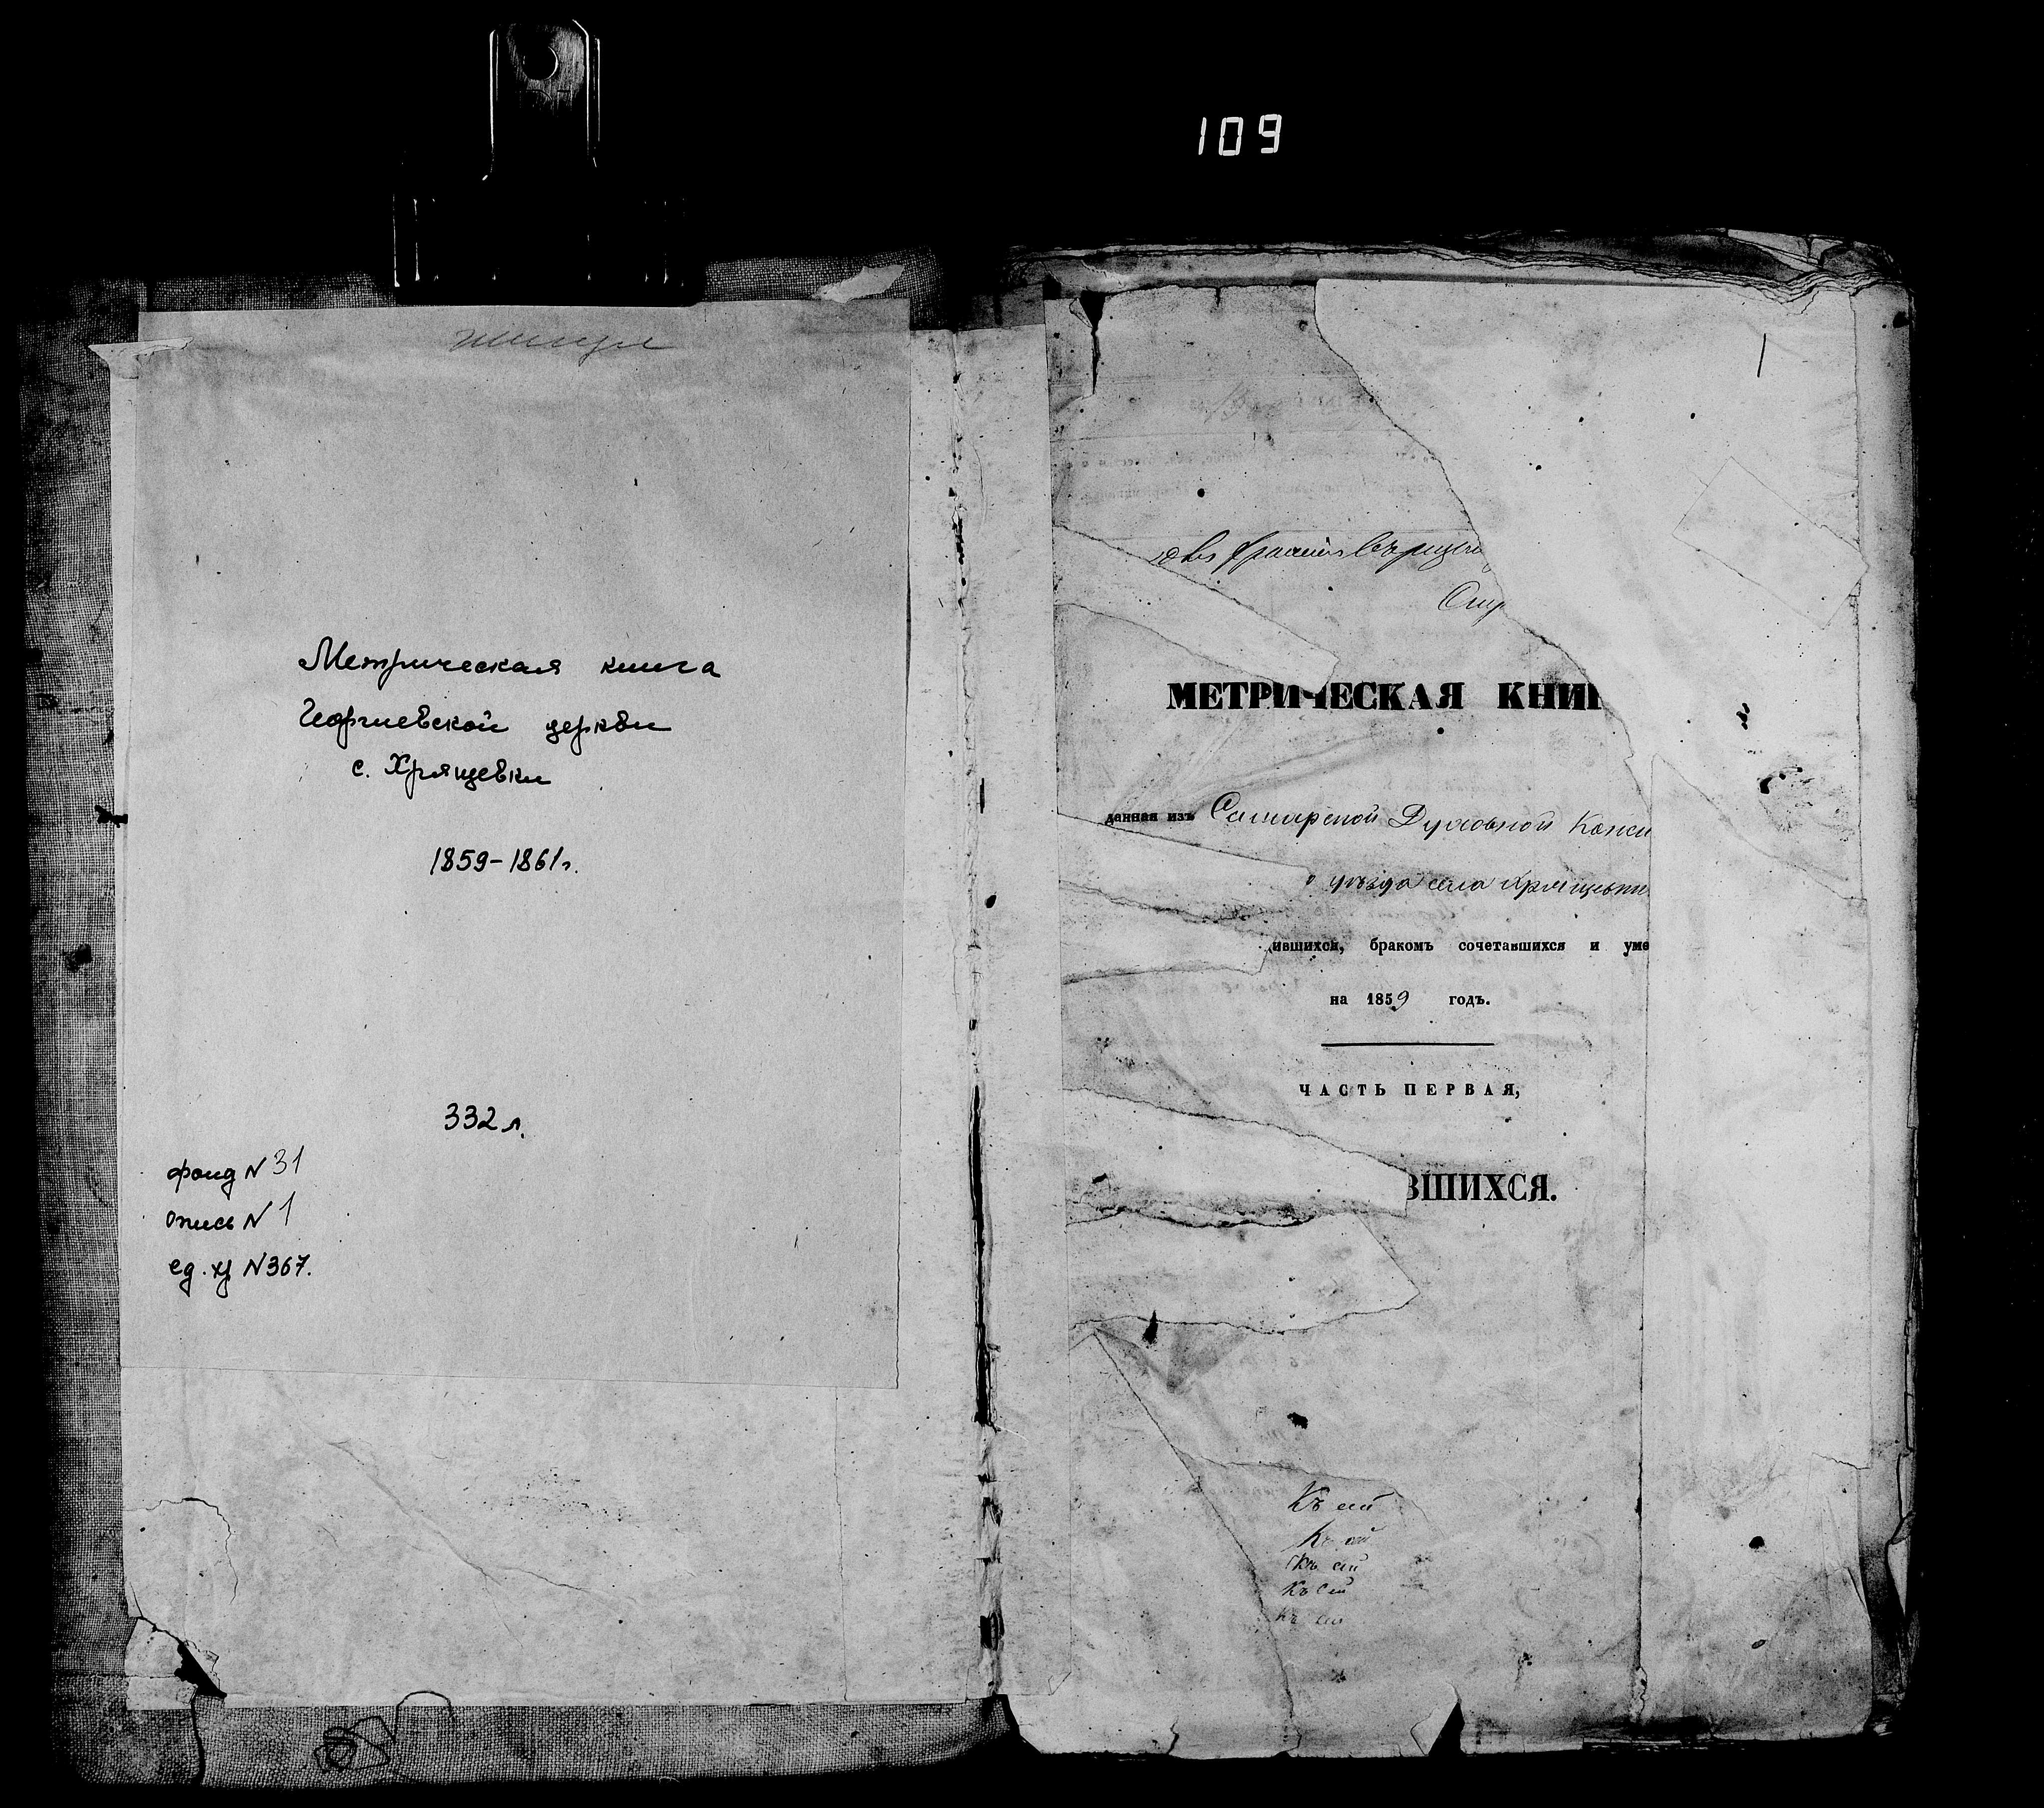 109
Метрическая книга
Георгиевской церкви
с. Хрящевки
1859-1861г.
332 л.
фонд N 31
опись N 1
ед. хр N 367.
1
МЕТРИЧЕСКАЯ КНИГ
данная изъ Самарской Духовной Конси
уѣзда села Хрящевки
ившихся, бракомъ сочетавшихся и уме
на 1859 годъ.
ЧАСТЬ ПЕРВАЯ,
ВШИХСЯ.
Къ сей
Къ сей
Къ сей
Къ сей
Къ сей